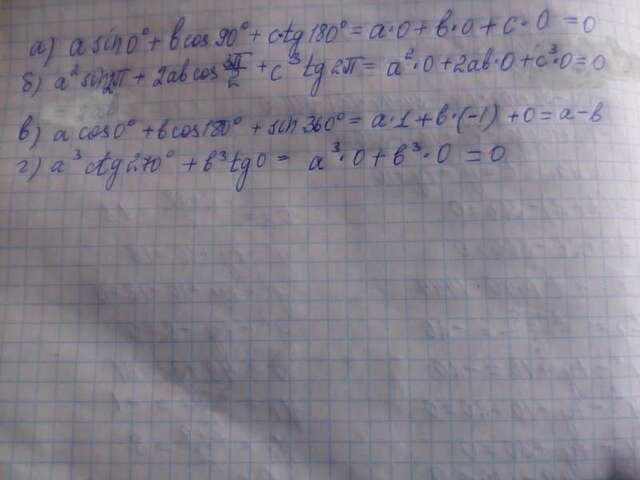 а) a sin 0° + b cos 90° + c tg 180° = a·0 + b·0 + c·0 = 0
б) a² sin 2π + 2ab cos 3π/2 + c³ tg 2π = a²·0 + 2ab·0 + c³·0 = 0
в) a cos 0° + b cos 180° + sin 360° = a·1 + b·(-1) + 0 = a - b
г) a³ ctg 270° + b³ tg 0 = a³·0 + b³·0 = 0